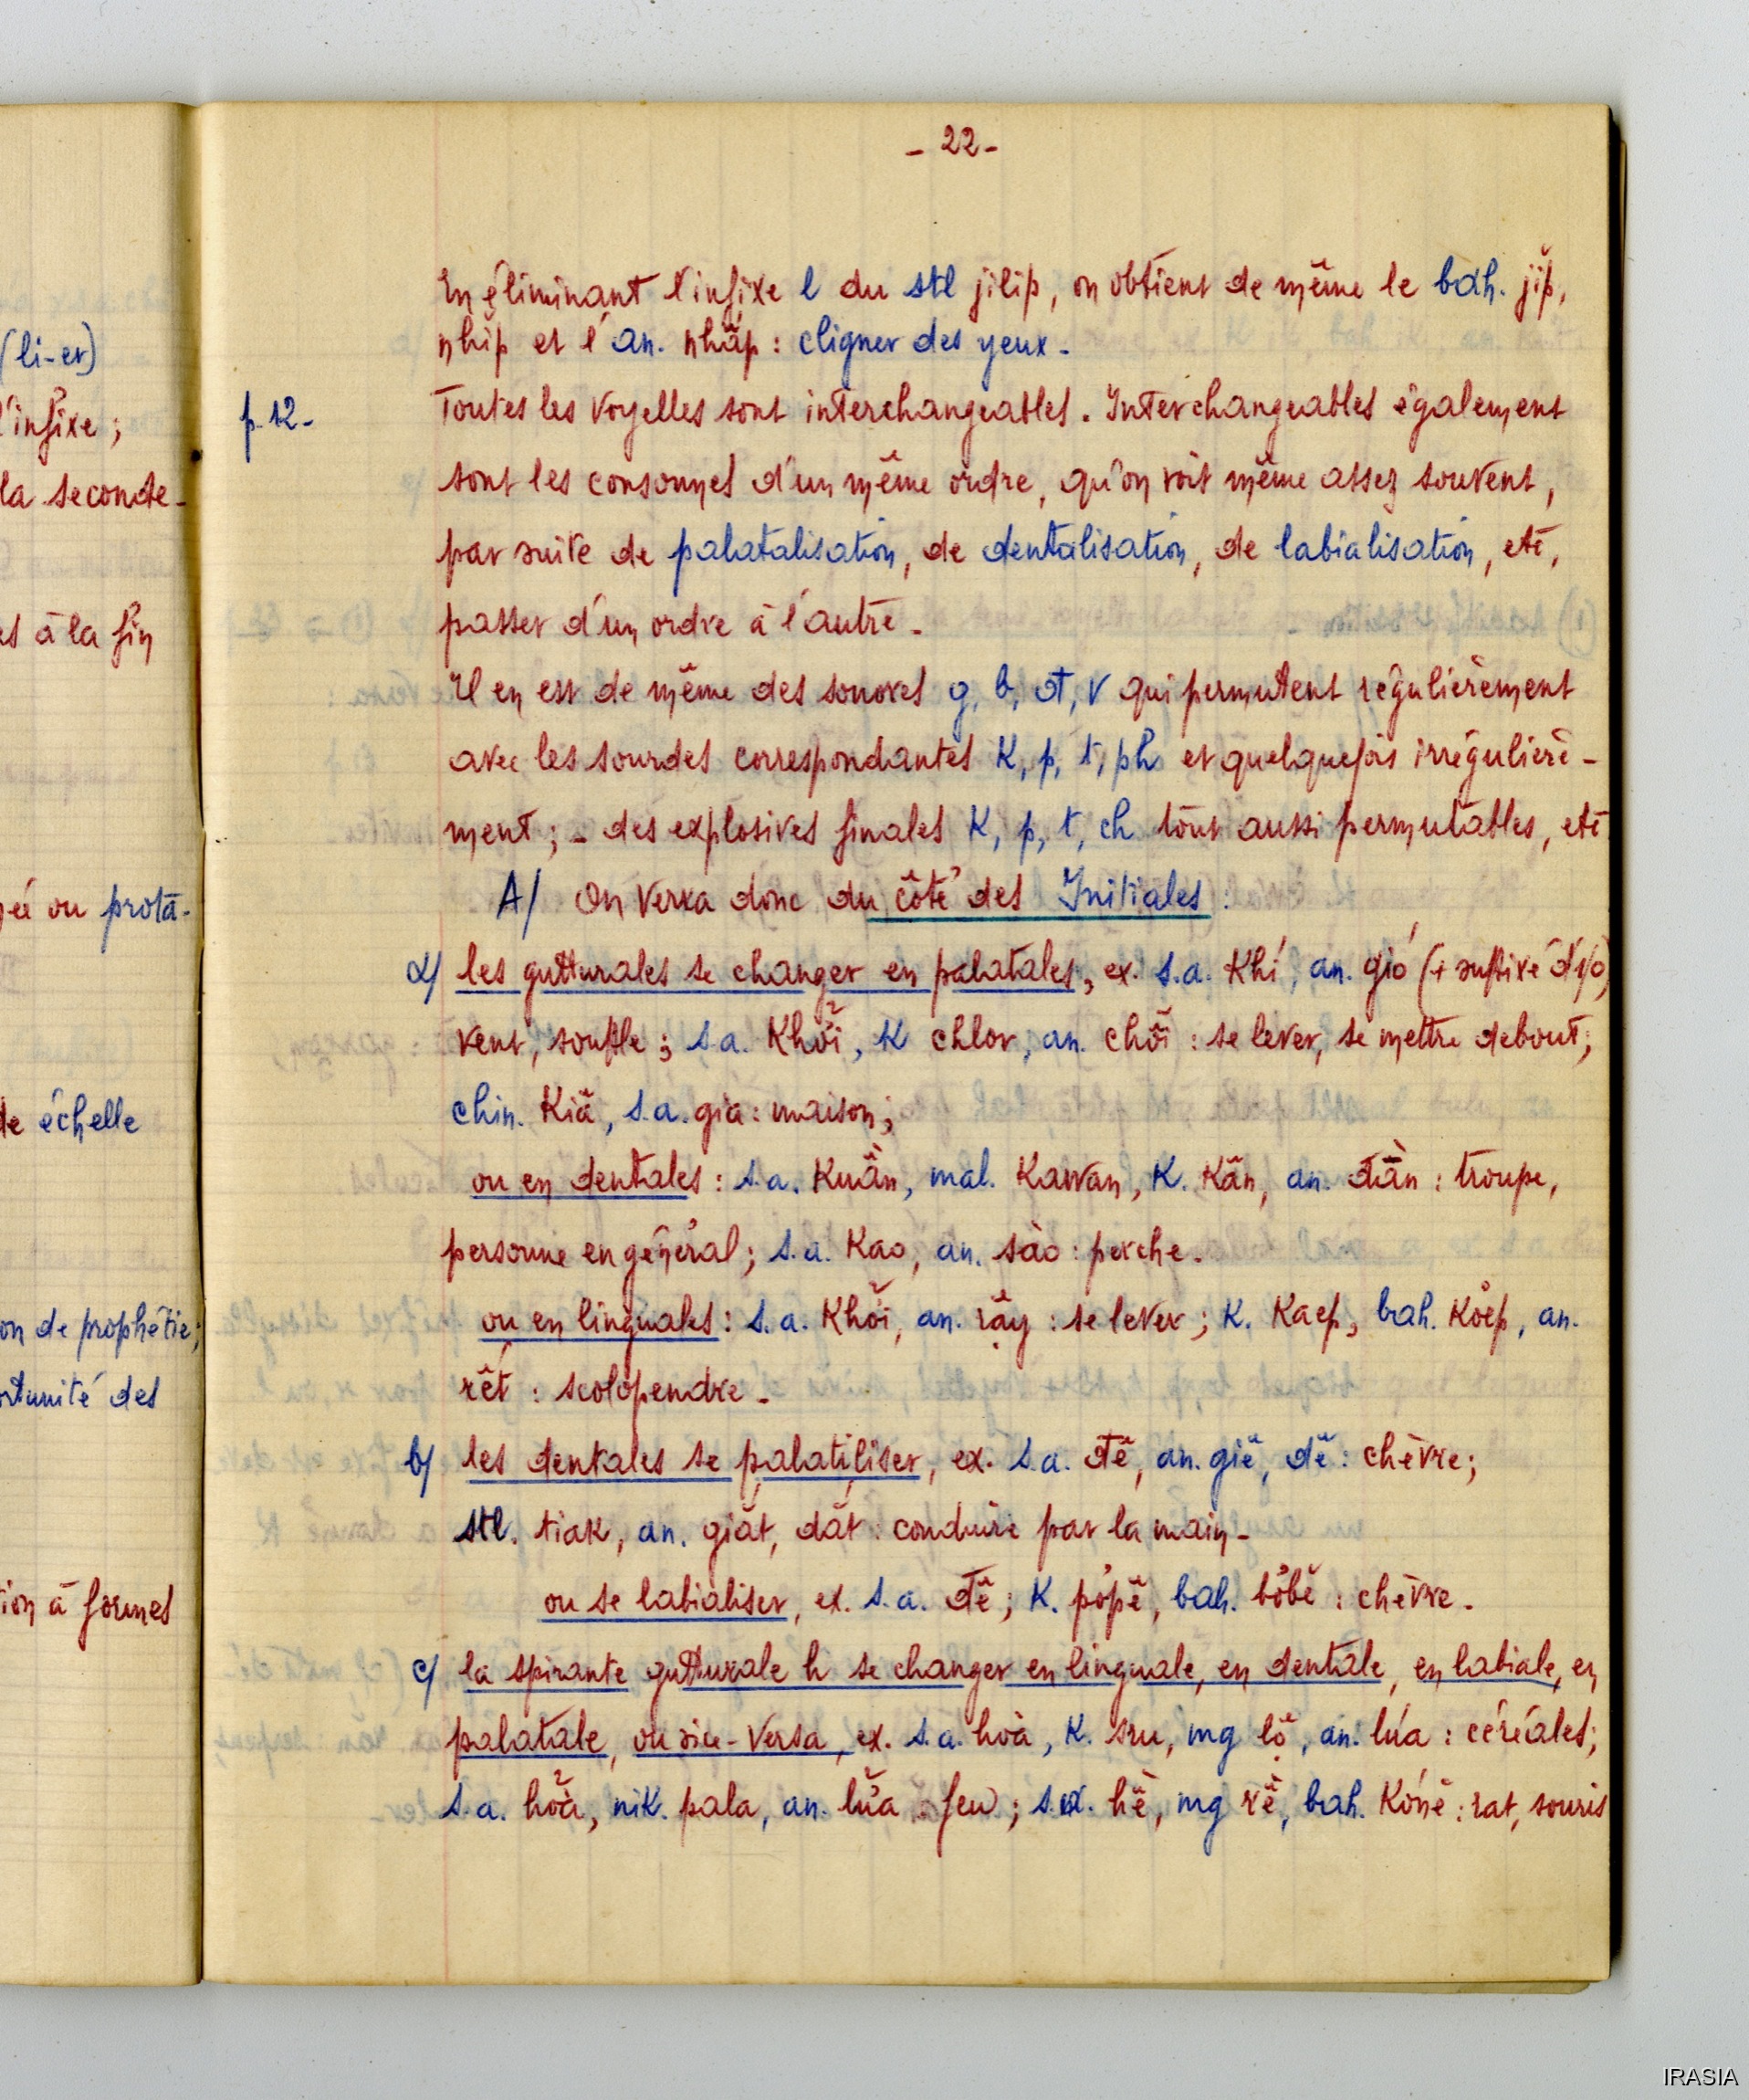 - 22 -
En éliminant l'infixe l du stl jilip, on obtient de même le bah. jĭp,
nhĭp et l'an. nhắp : cligner des yeux -
p. 12 - Toutes les voyelles sont interchangeables. Interchangeables également
sont les consonnes d'un même ordre, qu'on voit même assez souvent,
par suite de palatalisation, de dentalisation, de labialisation, etc,
passer d'un ordre à l'autre -
Il en est de même des sonores g, b, đ, v qui permutent régulièrement
avec les sourdes correspondantes K, p, t, ph et quelquefois irréguliere-
ment ; - des explosives finales K, p, t, ch tout aussi permutables, etc
A/ On verra donc du côté des Initiales :
a/ les gutturales se changer en palatales, ex. s.a. Khí, an. gió (+ suffixé d'o)
vent, souffle ; s.a. Khởi, K chlor, an. chổi : se lever, se mettre debout ;
chin. Kiă, s.a. gia : maison ;
ou en dentales : s.a. Kuần, mal. Kawan, K. Kăn, an. đàn : troupe,
personne en général ; s.a. Kao, an. sào : perche.
ou en linguales : s.a. Khởi, an. rậy : se lever ; K. Kaep, bah. Kơ̆ep, an.
rêt : scolopendre -
b/ les dentales se palatiliser, ex. s.a. đê, an. giê, dê : chèvre ;
stl. tiak, an. giắt, dắt : conduire par la main -
ou se labialiser, ex. s.a. đê ; K. pơpê, bah. bơbê : chèvre -
c/ la spirante gutturale h se changer en linguale, en dentale, en labiale, en
palatale, ou vice-versa, ex. s.a. hoà, K. sru, mg lọ̆, an. lúa : céréales ;
s.a. hỏa, nik. pala, an. lửa : feu ; s.a. hĕ̀, mg rĕ̀, bah. Kơnê : rat, souris
(li-er)
l'infixe ;
la seconde -
es à la fin
ou protă-
de échelle
on de prophétie ;
ortunité des
tion à formes
IRASIA